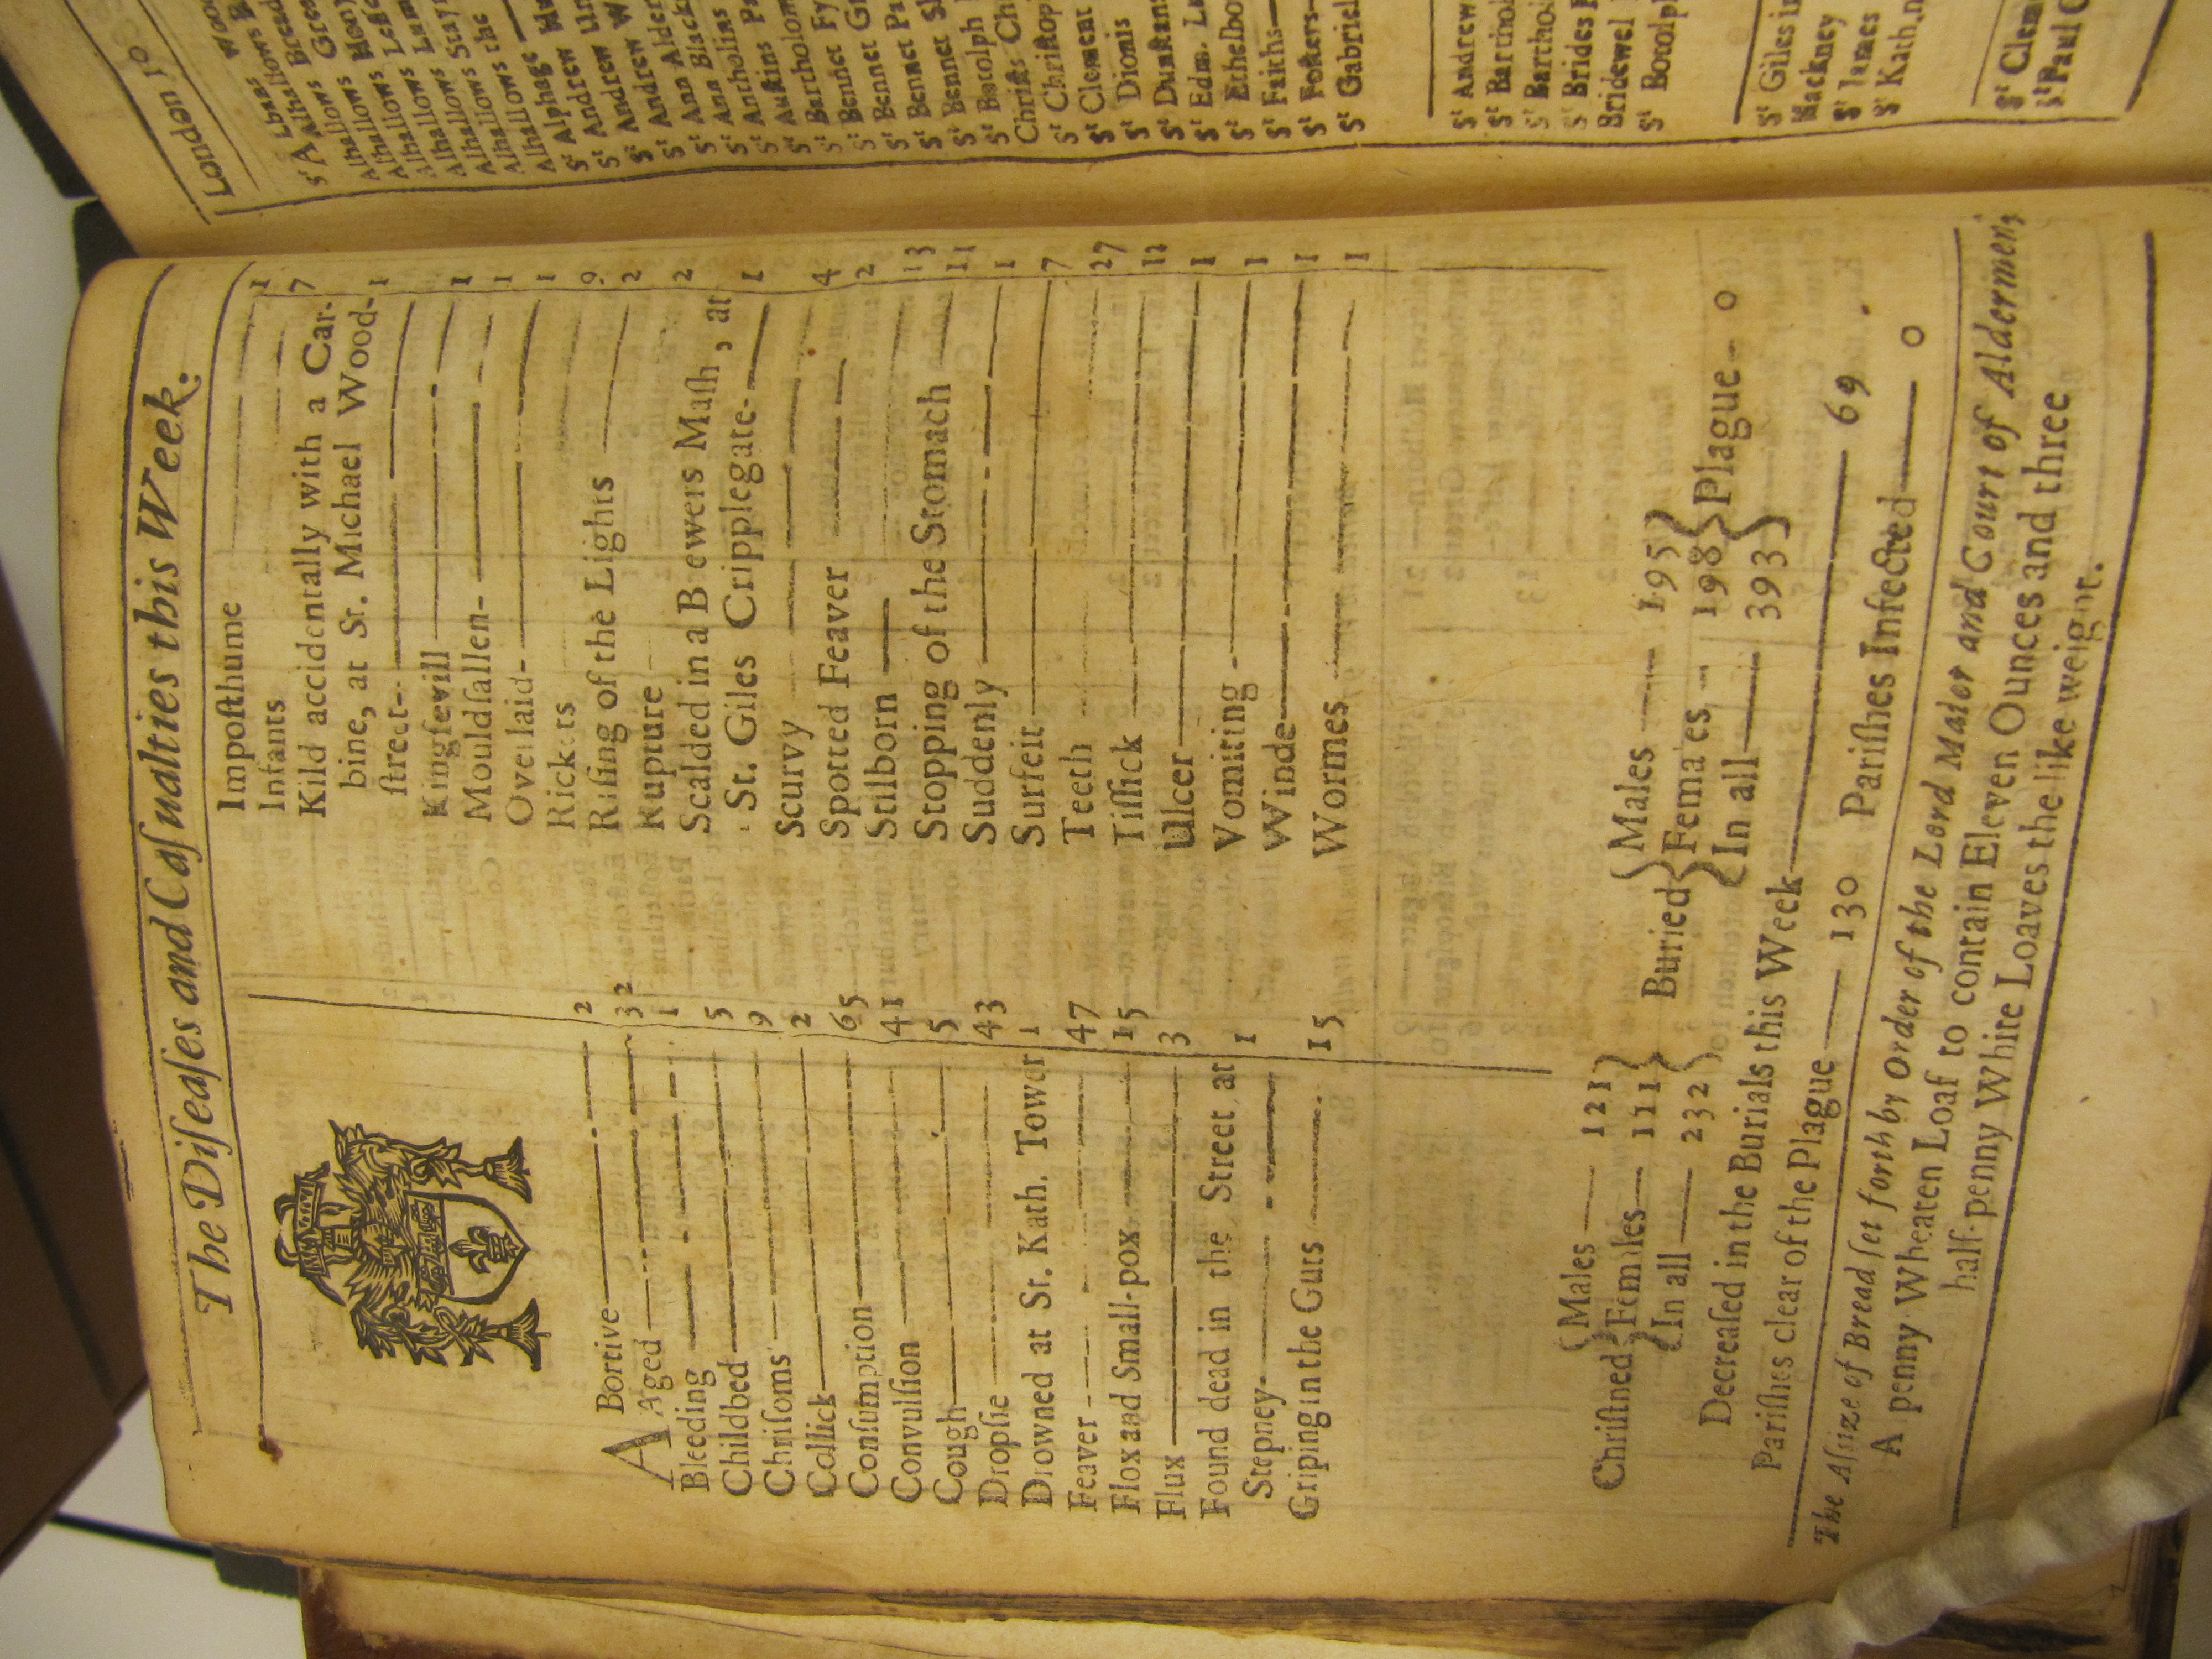 The Diſeaſes and Caſualties this Week.
ABortive 2
Aged 32
Bleeding 1
Childbed 5
Chriſoms 9
Collick 2
Conſumption 65
Convulſion 41
Cough 5
Dropſie 43
Drowned at St. Kath. Tower 1
Feaver 47
Flox and Small-pox 15
Flux 3
Found dead in the Street at
Stepney 1
Griping in the Guts 15
Impoſthume 1
Infants 7
Kild accidentally with a Car-
bine, at St. Michael Wood-
ſtreet 1
Kingſevill 1
Mouldfallen 1
Overlaid 1
Rickets 9
Riſing of the Lights 2
Rupture 2
Scalded in a Bewers Maſh, at
St. Giles Cripplegate 1
Scurvy 4
Spotted Feaver 2
Stilborn 13
Stopping of the Stomach 11
Suddenly 1
Surfeit 7
Teeth 27
Tiſſick 11
Ulcer 1
Vomiting 1
Winde 1
Wormes 1
Chriſtned Males 121 Buried Males 195 Plague 0
Femles 111 Females 198
In all 232 In all 393
Decreaſed in the Burials this Week 69
Pariſhes clear of the Plague 130 Pariſhes Infected 0
The Aſsize of Bread ſet forth by Order of the Lord Maior and Court of Aldermen;
A penny Wheaten Loaf to contain Eleven Ounces and three
half-penny White Loaves the like weight.
London 10
St Albans Wood
Alhallows B
Alhallows Bread
Alhallows Grea
Alhallows Hony
Alhallows Leſſ
Alhallows Lum
Alhallows Stay
Alhallows the
Alhallage
St Alphage
St Andrew Hu
St Andrew Un
St Andrew W
St Ann Alder
St Ann Black
St Antholins Pa
St Auſtins Pa
St Bartholom
St Bennet Fy
St Bennet Gr
St Bennet Pa
St Bennet Sh
St Botolph
Chriſts Ch
St Chriſtop
St Clement
St Dionis
St Dunſtans
St Edm. Lu
St Ethelbo
St Faiths
St Foſters
St Gabriel
St Andrew
St Bartho
St Bartho
St Brides
Bridewel
St Botolph
St Giles in
Hackney
St James
St Kath.n
St Clem
St Paul C